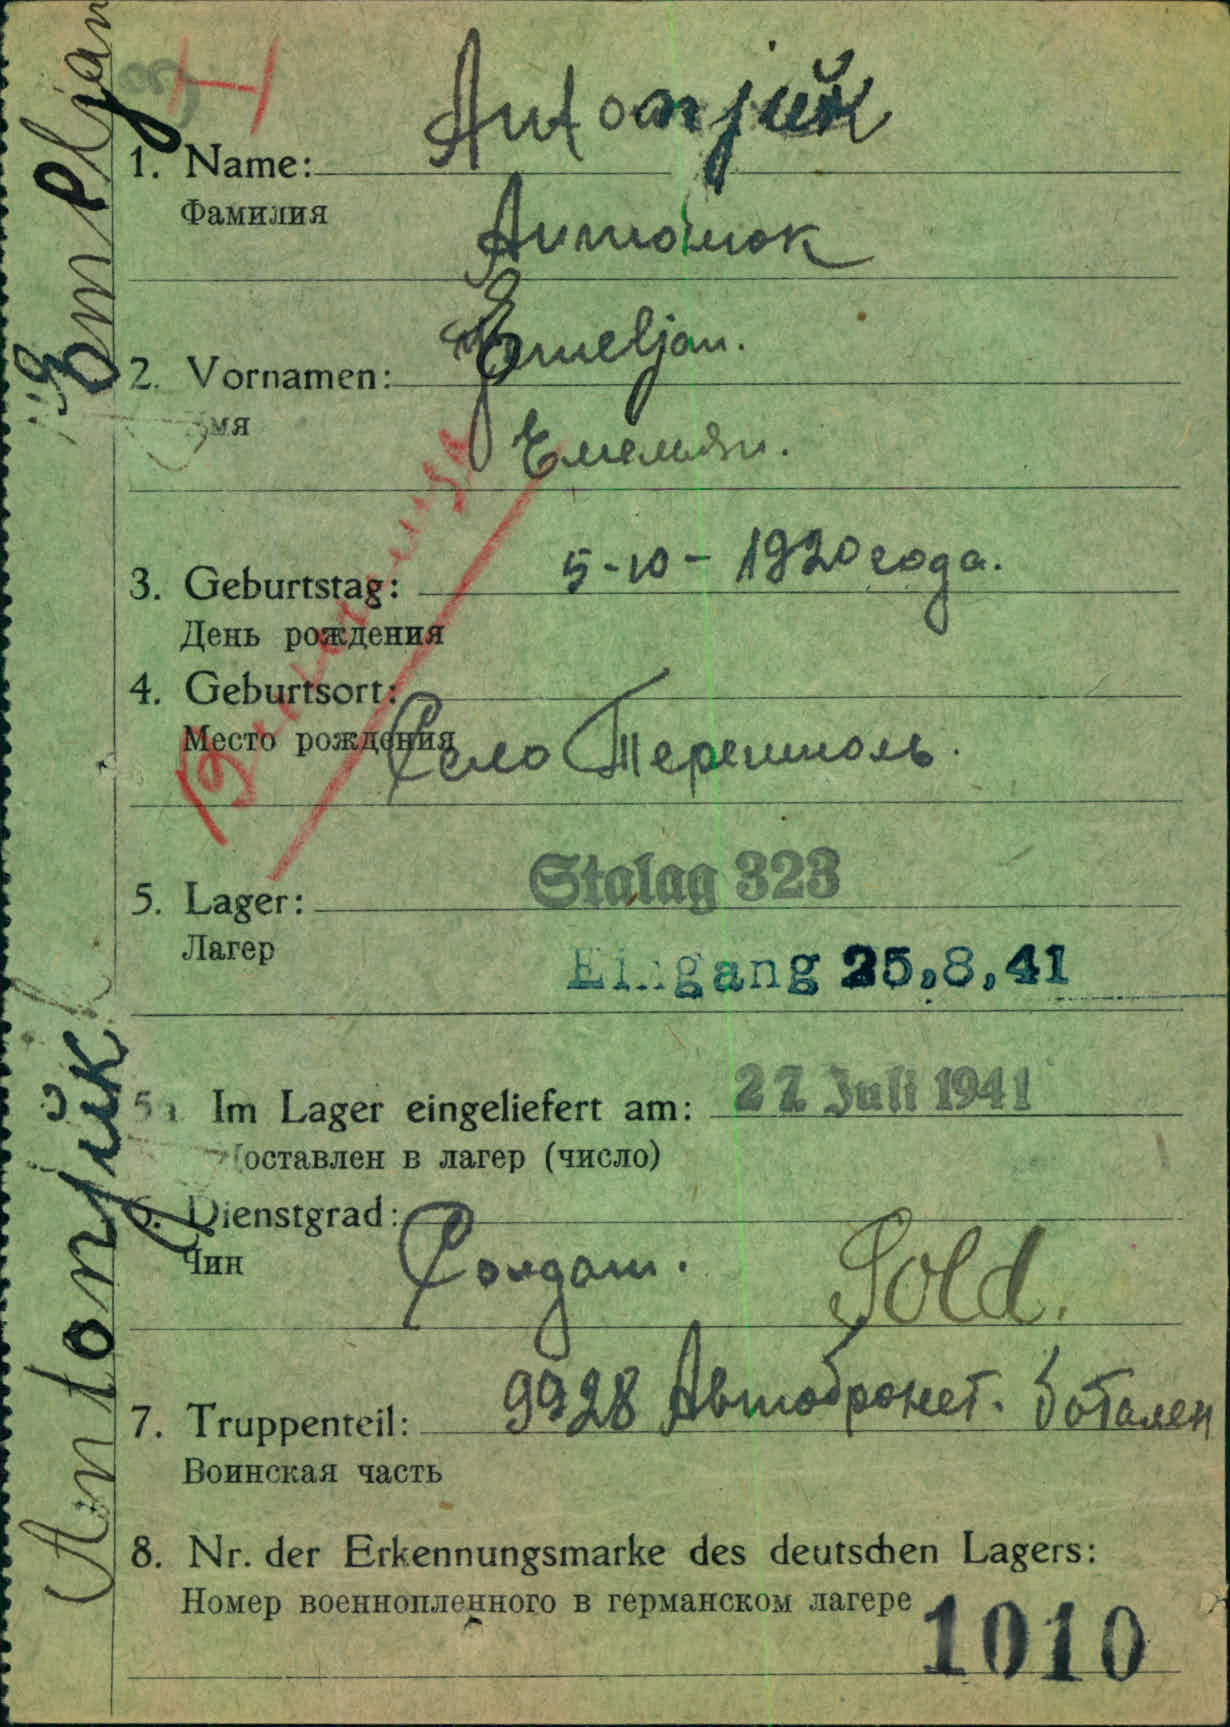 Antonjuk
1. Name:
Фамилия
Антонюк
Emeljan.
2. Vornamen:
Имя
Емельян.
5-10-1920 года.
3. Geburtstag:
День рождения
4. Geburtsort:
Место рождения
Село Терешполь.
Stalag 323
5. Lager:
Лагер
Eingang 25,8,41
27. Juli 1941
5a. Im Lager eingeliefert am:
Доставлен в лагер (число)
6. Dienstgrad:
Чин
Солдат.
Sold.
9928 Автобронет. Батален
7. Truppenteil:
Воинская часть
8. Nr. der Erkennungsmarke des deutschen Lagers:
Номер военнопленного в германском лагере
1010
Antonjuk
Emeljan